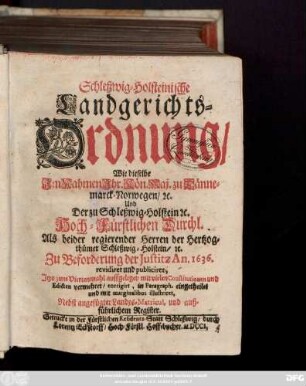 Schleßwig-Holsteinische
Landgerichts-
Ordnung/
Wie dieselbe
Im Nahmen Ihr. Kön. Maj. zu Dänne-
marck-Norwegen/ ꝛc.
Und
Der zu Schleßwig-Holstein ꝛc.
Hoch-Fürstlichen Durchl.
Als beider regierender Herren der Hertzog-
thümer Schleßwig-Holstein/ ꝛc.
Zu Beforderung der Justitz An. 1636.
revidiret und publiciret,
Jetzo zum Viertenmahl auffgeleget mit vielen Constitutionen und
Edicten vermehret/ corrigiret, in Paragraph. eingetheilet
und mit marginalibus illustriret,
Nebst angefügter Landes-Matricul, und auß-
führlichem Register.
Gedruckt in der Fürstlichen Residentz-Stadt Schleßwig/ durch
Hoch-Fürstl. Hoffbuchdr. MDCCI.